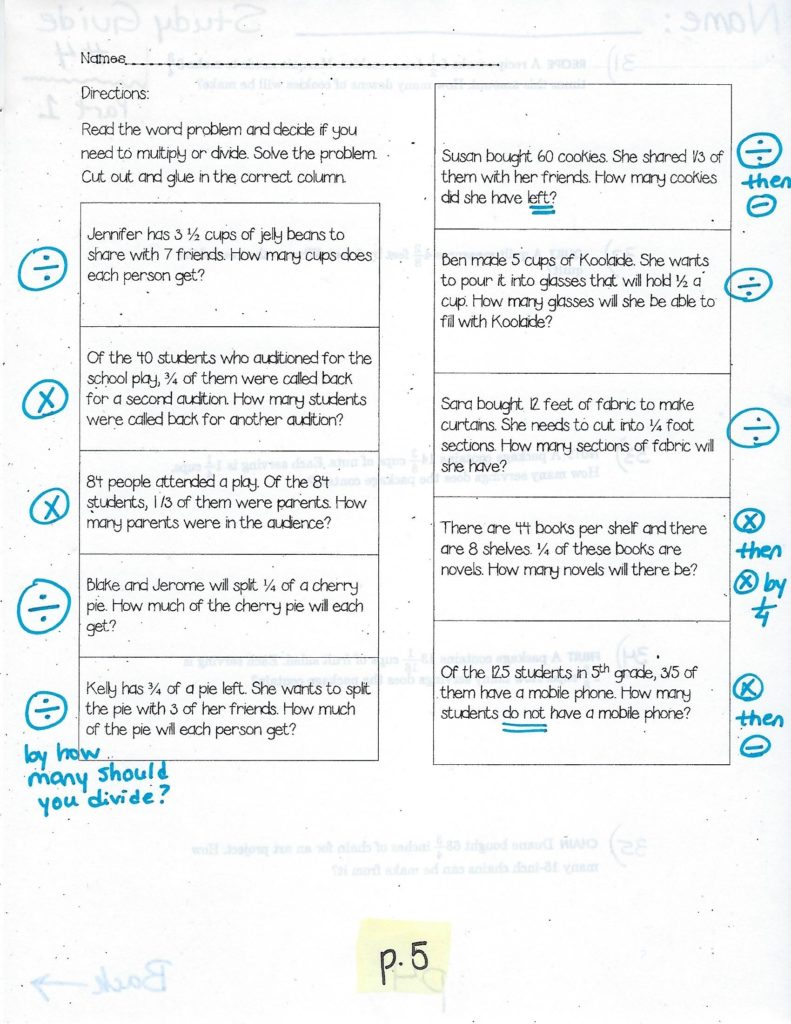 Names
Directions:
Read the word problem and decide if you
need to multiply or divide. Solve the problem.
Cut out and glue in the correct column.
÷
Jennifer has 3 ½ cups of jelly beans to
share with 7 friends. How many cups does
each person get?
x
Of the 40 students who auditioned for the
school play, ¾ of them were called back
for a second audition. How many students
were called back for another audition?
x
84 people attended a play. Of the 84
students, 1/3 of them were parents. How
many parents were in the audience?
÷
Blake and Jerome will split ¼ of a cherry
pie. How much of the cherry pie will each
get?
÷
by how
many should
you divide?
Kelly has ¾ of a pie left. She wants to split
the pie with 3 of her friends. How much
of the pie will each person get?
Susan bought 60 cookies. She shared 1/3 of
them with her friends. How many cookies
did she have left?
÷
then
-
Ben made 5 cups of Koolade. She wants
to pour it into glasses that will hold ½ a
cup. How many glasses will she be able to
fill with Koolade?
÷
Sara bought 12 feet of fabric to make
curtains. She needs to cut into ¼ foot
sections. How many sections of fabric will
she have?
÷
There are 44 books per shelf and there
are 8 shelves. ¼ of these books are
novels. How many novels will there be?
x
then
x by
1/4
Of the 125 students in 5th grade, 3/5 of
them have a mobile phone. How many
students do not have a mobile phone?
x
then
-
p.5